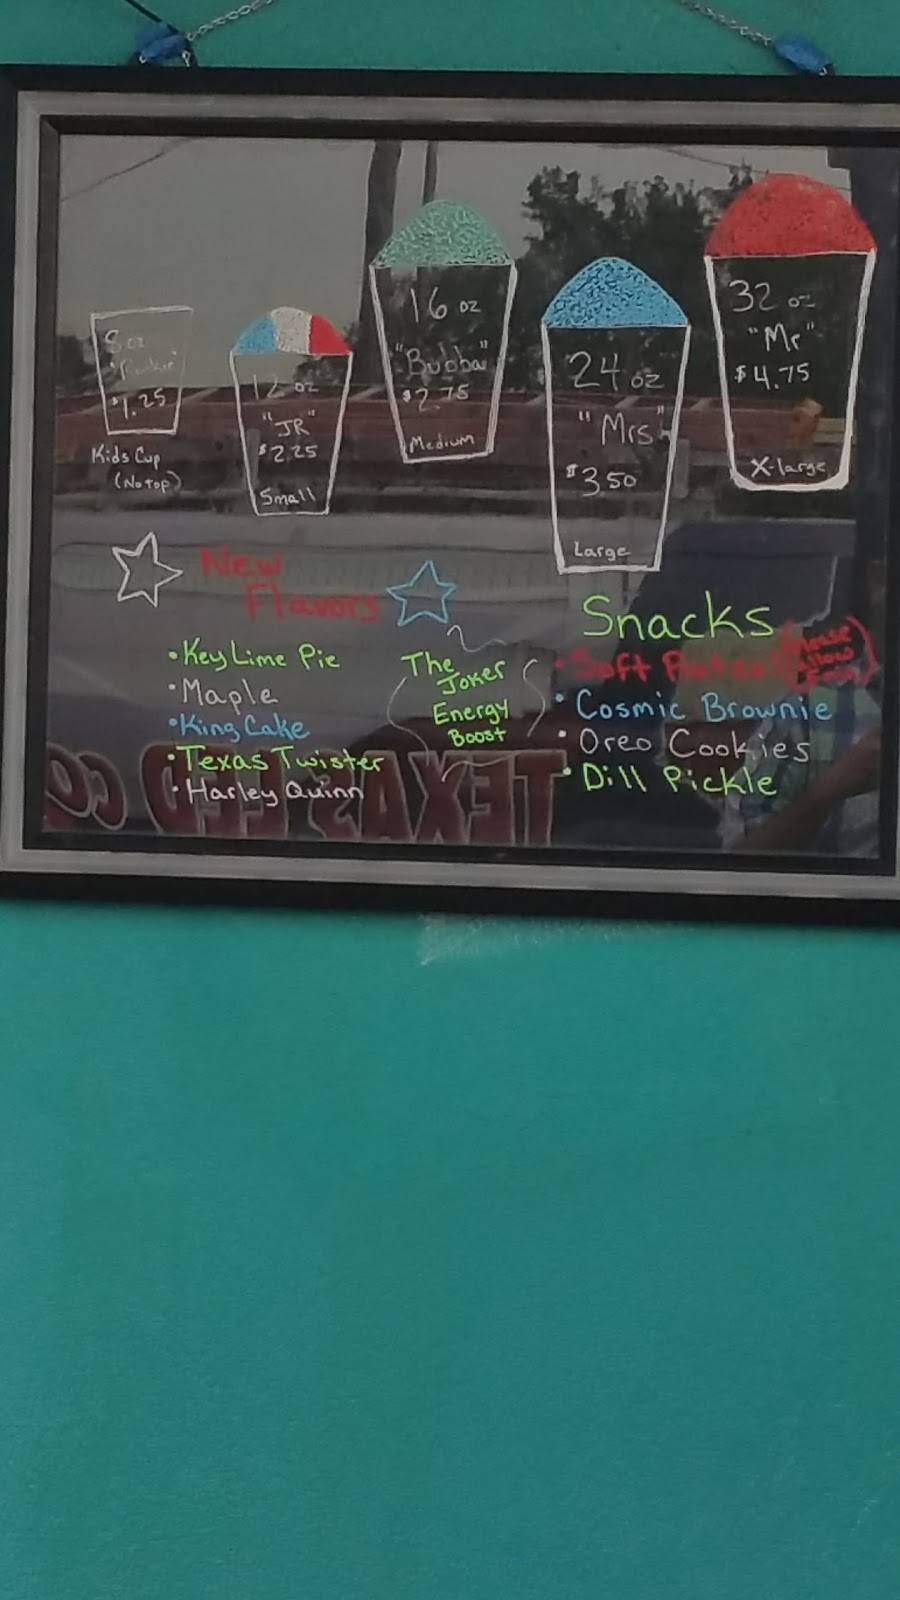 8 oz
$1.25
Kids Cup
(No top)
12 oz
"JR"
$2.25
Small
16 oz
"Bubba"
$2.75
Medium
24 oz
"Mrs"
$3.50
Large
32 oz
"Mr"
$4.75
X-large
New
Flavors
• Key Lime Pie
• Maple
• King Cake
• Texas Twister
• Harley Quinn
The
Joker
Energy
Boost
Snacks
• Soft (Please
Allow
• Cosmic Brownie
• Oreo Cookies
• Dill Pickle
TEXAS LED CO